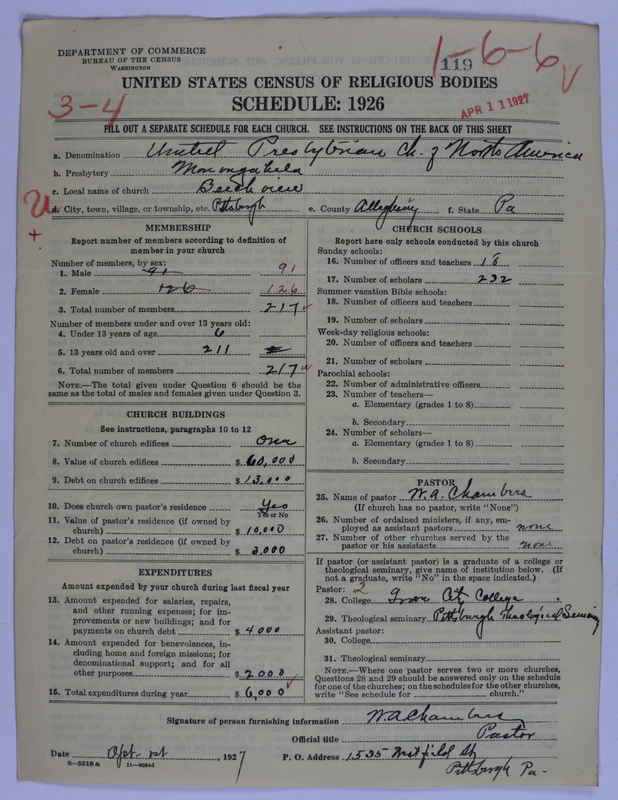 DEPARTMENT OF COMMERCE
BUREAU OF THE CENSUS
WASHINGTON
119
1-6-6
UNITED STATES CENSUS OF RELIGIOUS BODIES
SCHEDULE: 1926
3-4
APR 11 1927
FILL OUT A SEPARATE SCHEDULE FOR EACH CHURCH. SEE INSTRUCTIONS ON THE BACK OF THIS SHEET
a. Denomination United Presbyterian Ch. of North America
b. Presbytery Monongahela
c. Local name of church Beechview
d. City, town, village, or township, etc. Pittsburgh e. County Allegheny f. State Pa
MEMBERSHIP
Report number of members according to definition of member in your church
Number of members, by sex:
1. Male 91 91
2. Female 126 126
3. Total number of members 217
Number of members under and over 13 years old:
4. Under 13 years of age 6
5. 13 years old and over 211
6. Total number of members 217
NOTE.—The total given under Question 6 should be the same as the total of males and females given under Question 3.
CHURCH BUILDINGS
See instructions, paragraphs 10 to 12
7. Number of church edifices One
8. Value of church edifices $ 60,000
9. Debt on church edifices $ 13,000
10. Does church own pastor's residence Yes
Yes or No
11. Value of pastor's residence (if owned by church) $ 10,000
12. Debt on pastor's residence (if owned by church) $ 3,000
EXPENDITURES
Amount expended by your church during last fiscal year
13. Amount expended for salaries, repairs, and other running expenses; for improvements or new buildings; and for payments on church debt $ 4000
14. Amount expended for benevolences, including home and foreign missions; for denominational support; and for all other purposes $ 2000
15. Total expenditures during year $ 6,000
CHURCH SCHOOLS
Report here only schools conducted by this church
Sunday schools:
16. Number of officers and teachers 18
17. Number of scholars 232
Summer vacation Bible schools:
18. Number of officers and teachers
19. Number of scholars
Week-day religious schools:
20. Number of officers and teachers
21. Number of scholars
Parochial schools:
22. Number of administrative officers
23. Number of teachers—
a. Elementary (grades 1 to 8)
b. Secondary
24. Number of scholars—
a. Elementary (grades 1 to 8)
b. Secondary
PASTOR
25. Name of pastor W. A. Chambers
(If church has no pastor, write "None")
26. Number of ordained ministers, if any, employed as assistant pastors none
27. Number of other churches served by the pastor or his assistants none
If pastor (or assistant pastor) is a graduate of a college or theological seminary, give name of institution below. (If not a graduate, write "No" in the space indicated.)
Pastor: 2
28. College Grove City College
29. Theological seminary Pittsburgh Theological Seminary
Assistant pastor:
30. College
31. Theological seminary
NOTE.—Where one pastor serves two or more churches, Questions 28 and 29 should be answered only on the schedule for one of the churches; on the schedules for the other churches, write "See schedule for church."
Signature of person furnishing information W A Chambers
Official title Pastor
Date , 1927 P. O. Address 1535 Westfield St
8—5518a 11—9554d Pittsburgh Pa-